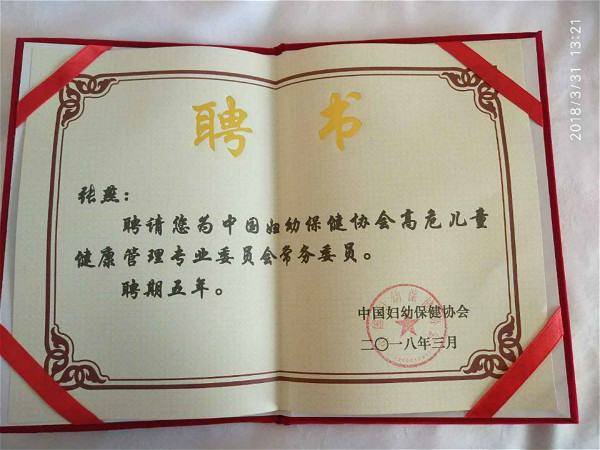 聘书
张燕：
聘请您为中国妇幼保健协会高危儿童
健康管理专业委员会常务委员。
聘期五年。
中国妇幼保健协会
二〇一八年三月
2018/3/31 13:21